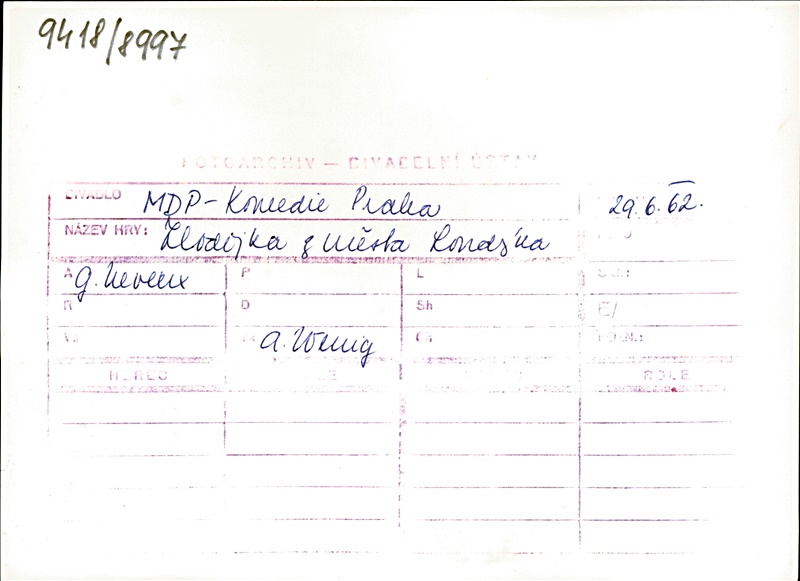 9418/8997
FOTOARCHIV — DIVADELNÍ ÚSTAV
DIVADLO MDP - Komedie Praha 29.6.62.
NÁZEV HRY: Zlodějka z města Londýna
A G. Neveux P L
R D Sh
A. Wenig
HEREC ROLE